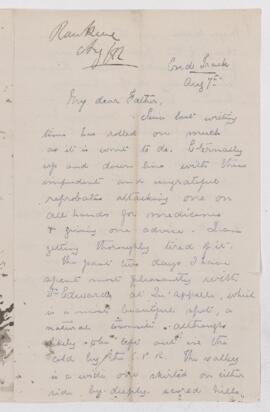 Rankine
Aug/82
End of Track
Aug 7th
My dear Father,
Since last writing
time has rolled on much
as it is wont to do. Eternally
up and down line with these
impudent and ungrateful
reprobates attacking one on
all hands for medicines
& giving one advice. I am
getting thoroughly tired of it.
The past two days I have
spent most pleasantly with
Dr Edwards at Qu'appelle, which
is a most beautiful spot, a
natural townsite although
likely to be left out in the
cold by the C.P.R. The valley
is a wide one skirted on either
side by deeply scored hills